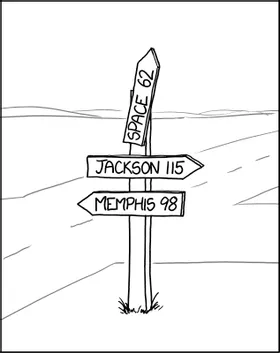 SPACE 62
JACKSON 115
MEMPHIS 98